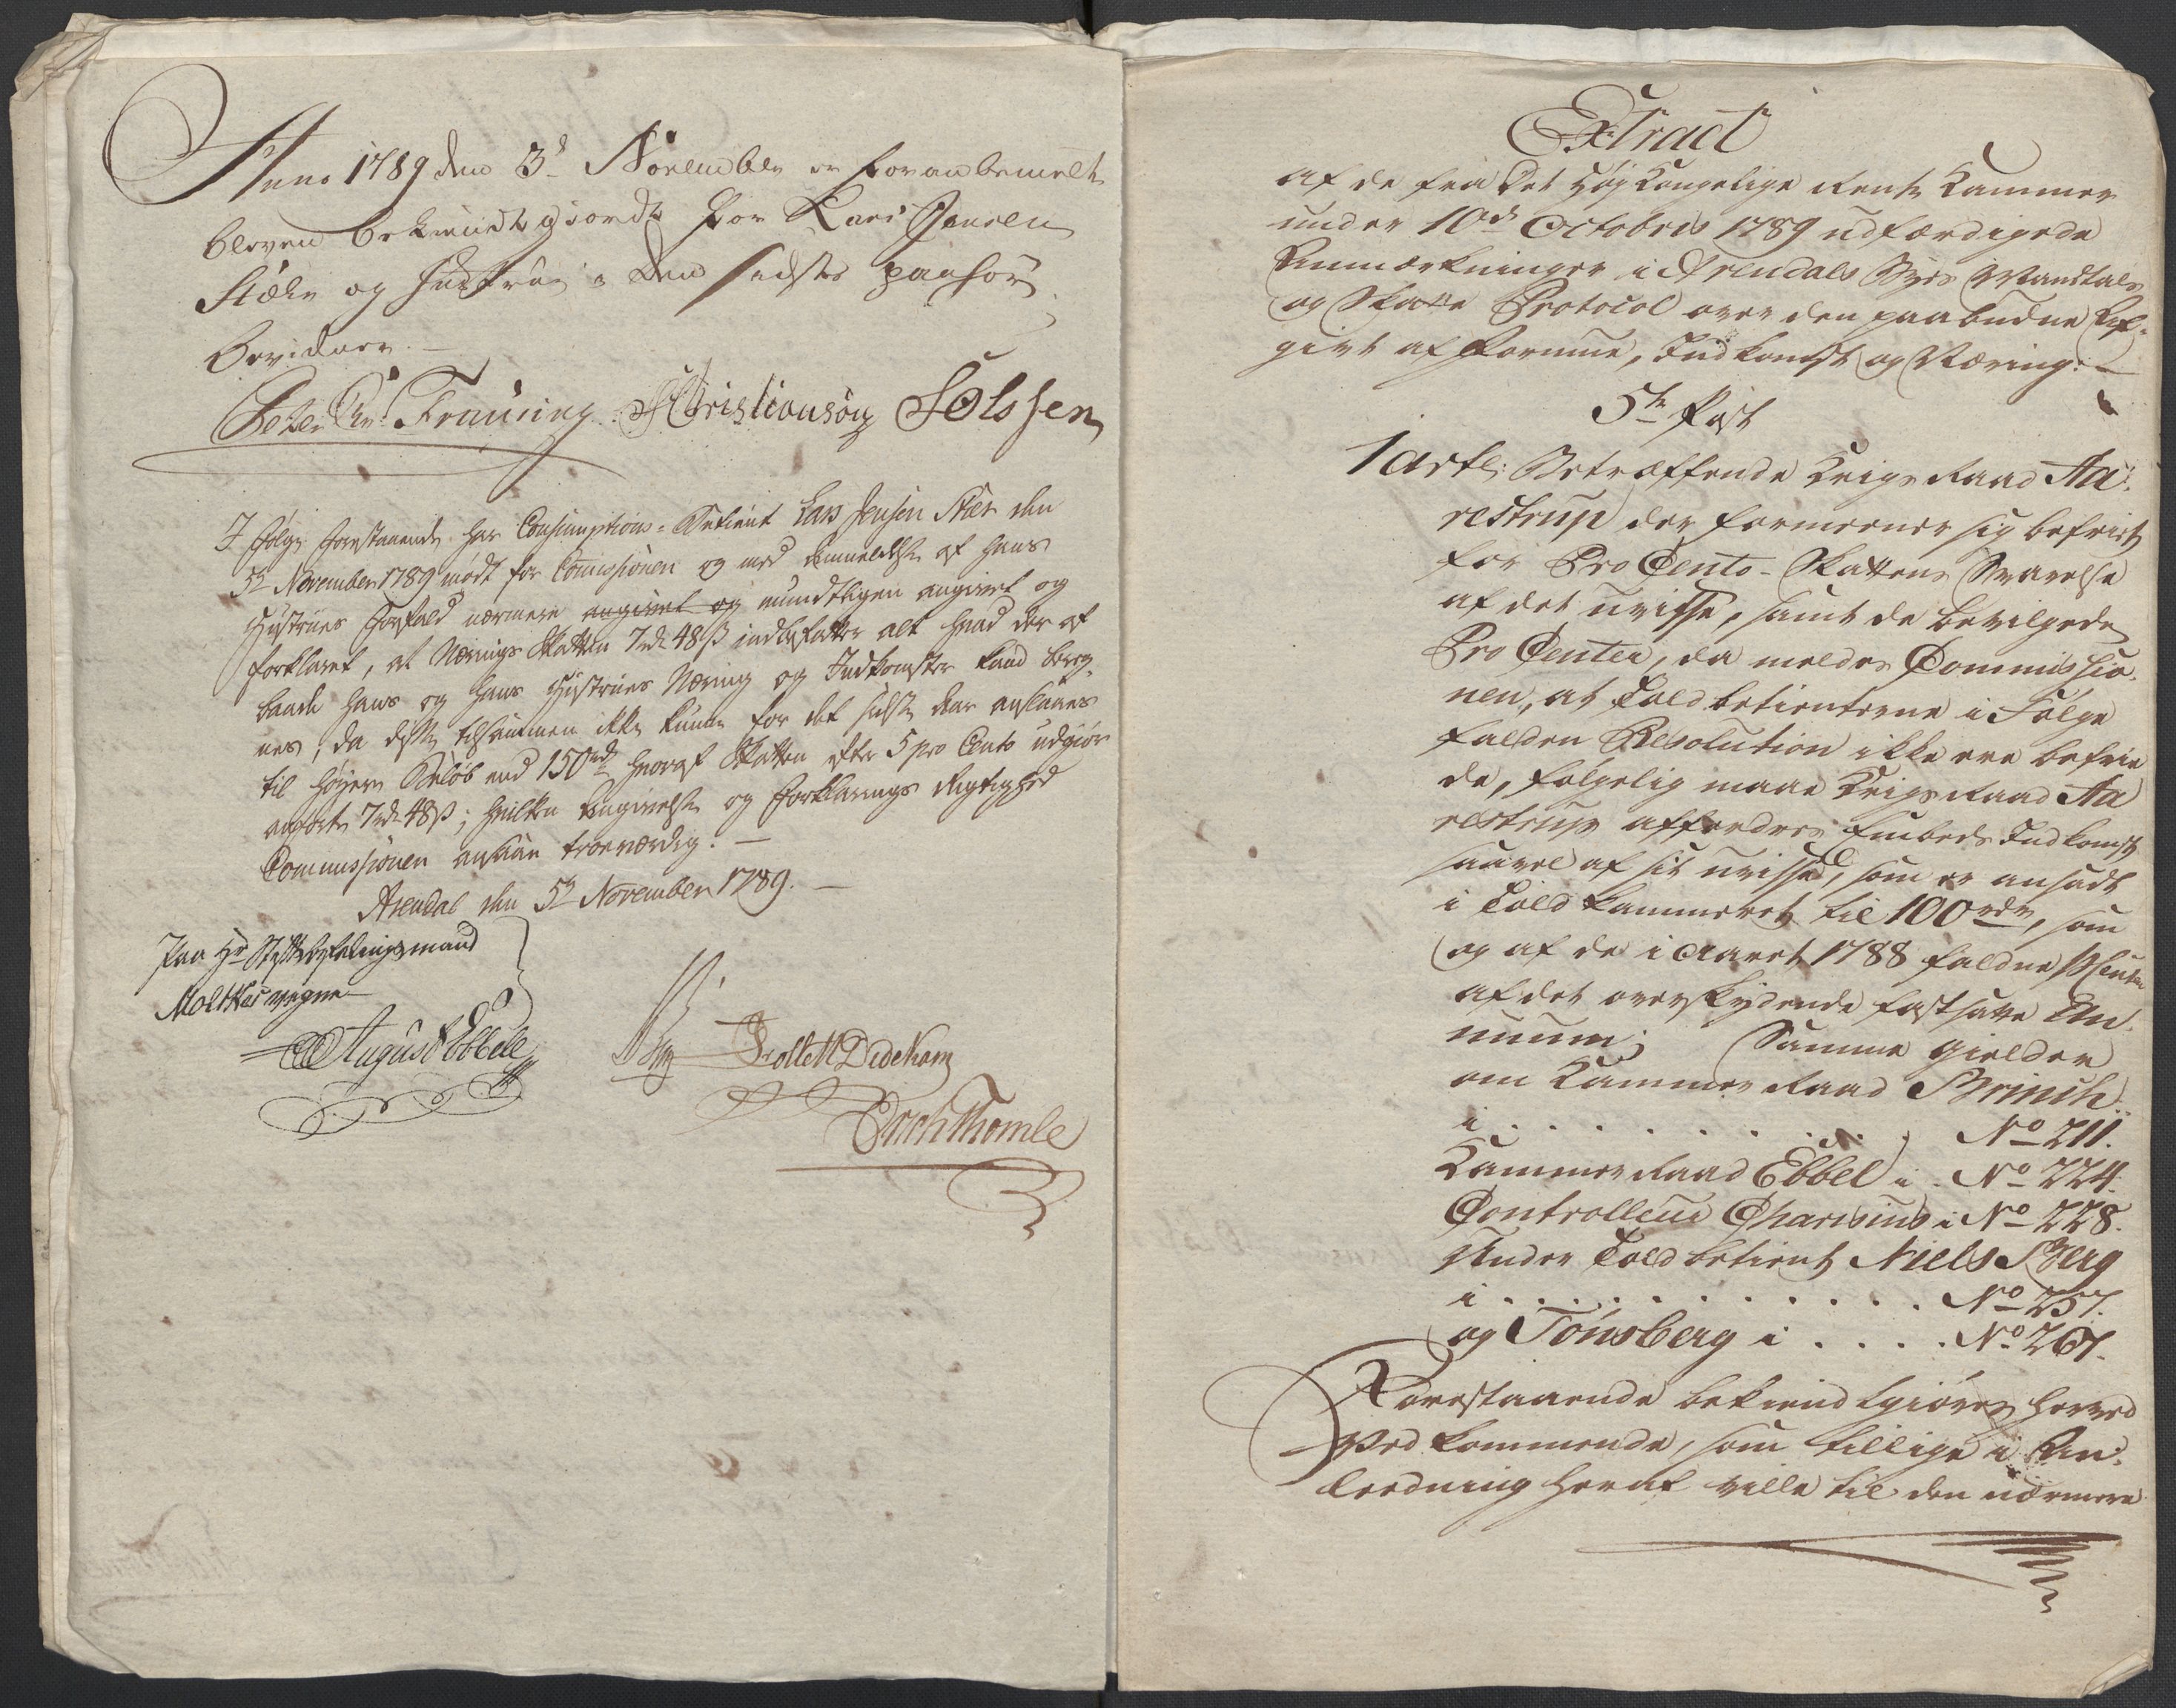 Anno 1789 den 3de November er foranbemelte
bleven bekiendtgiordt for Lars Jensen
Skier og Hustrue i den sidstes paahør
bevidner. —
Peter Chr: Frausing Christiansøn S Olssen
I følge forestaaende har Consumptions-Betient Lars Jensen Skier den
5te November 1789 mødt for Comissionen og med Anmeldelse af hans
Hustrues Forfald nærmere angivet og mundtligen angivet og
forklaret, at Nærings Skatten 7rd 48ß indbefatter alt hvad der af
baade hans og hans Hustrues Næring og Indkomster kand bereg-
nes, da disse tilsammen ikke kunne for det sidste Aar ansaaes
til høyere Beløb end 150rd hvoraf Skatten efter 5 pro Cento udgiør
anførte 7rd 48ß; hvilken Angivelse og Forklarings Rigtighed
Commissionen ansaae troeværdig. —
Arendal den 5te November 1789. —
Paa Hr Stiftbefalingsmand
Moltkes vegne
August Ebbell
Tollef Dedekam
Erich Thomle
Extract
af de fra Det Høy Kongelige Rente Kammer
under 10de Octobris 1789 udfærdigede
Anmærkninger i Arendals Byes Mandtals
og Skatte Protocol over den paabudne Af-
givt af Formue, Indkomst og Næring. —
5te Post
1 Artl: Betræffende Krigs Raad Aa-
restrup der formeener sig befriet
for Pro Cento-Skattens Svarelse
af det uvisse, samt de bevilgede
Pro Center, da meldes Commissio-
nen, at Toldbetienterne i Følge
falden Resolution ikke ere befrie
de, følgelig maae Krigsraad Aa
restrup affordres Embeds Indkomst
saavel af sit uvisse, som er ansadt
i Toldkammeret til 100rdr, som
og af de i Aaret 1788 faldne pCenter
af det overskydende fastsatte An-
nuum; Samme gielder
om Kammer Raad Brinch
i . . . . . . . . . . . No 211.
Kammer Raad Ebbel i . No 224.
Controlleur Charisius i No 228.
Under Toldbetient Niels Berg
i . . . . . . . . . . . . No 257.
og Tønsberg i . . . . No 267.
Forestaaende bekiendtgiøres herved
Vedkommende, som tillige i An-
ledning heraf ville til den nærmere